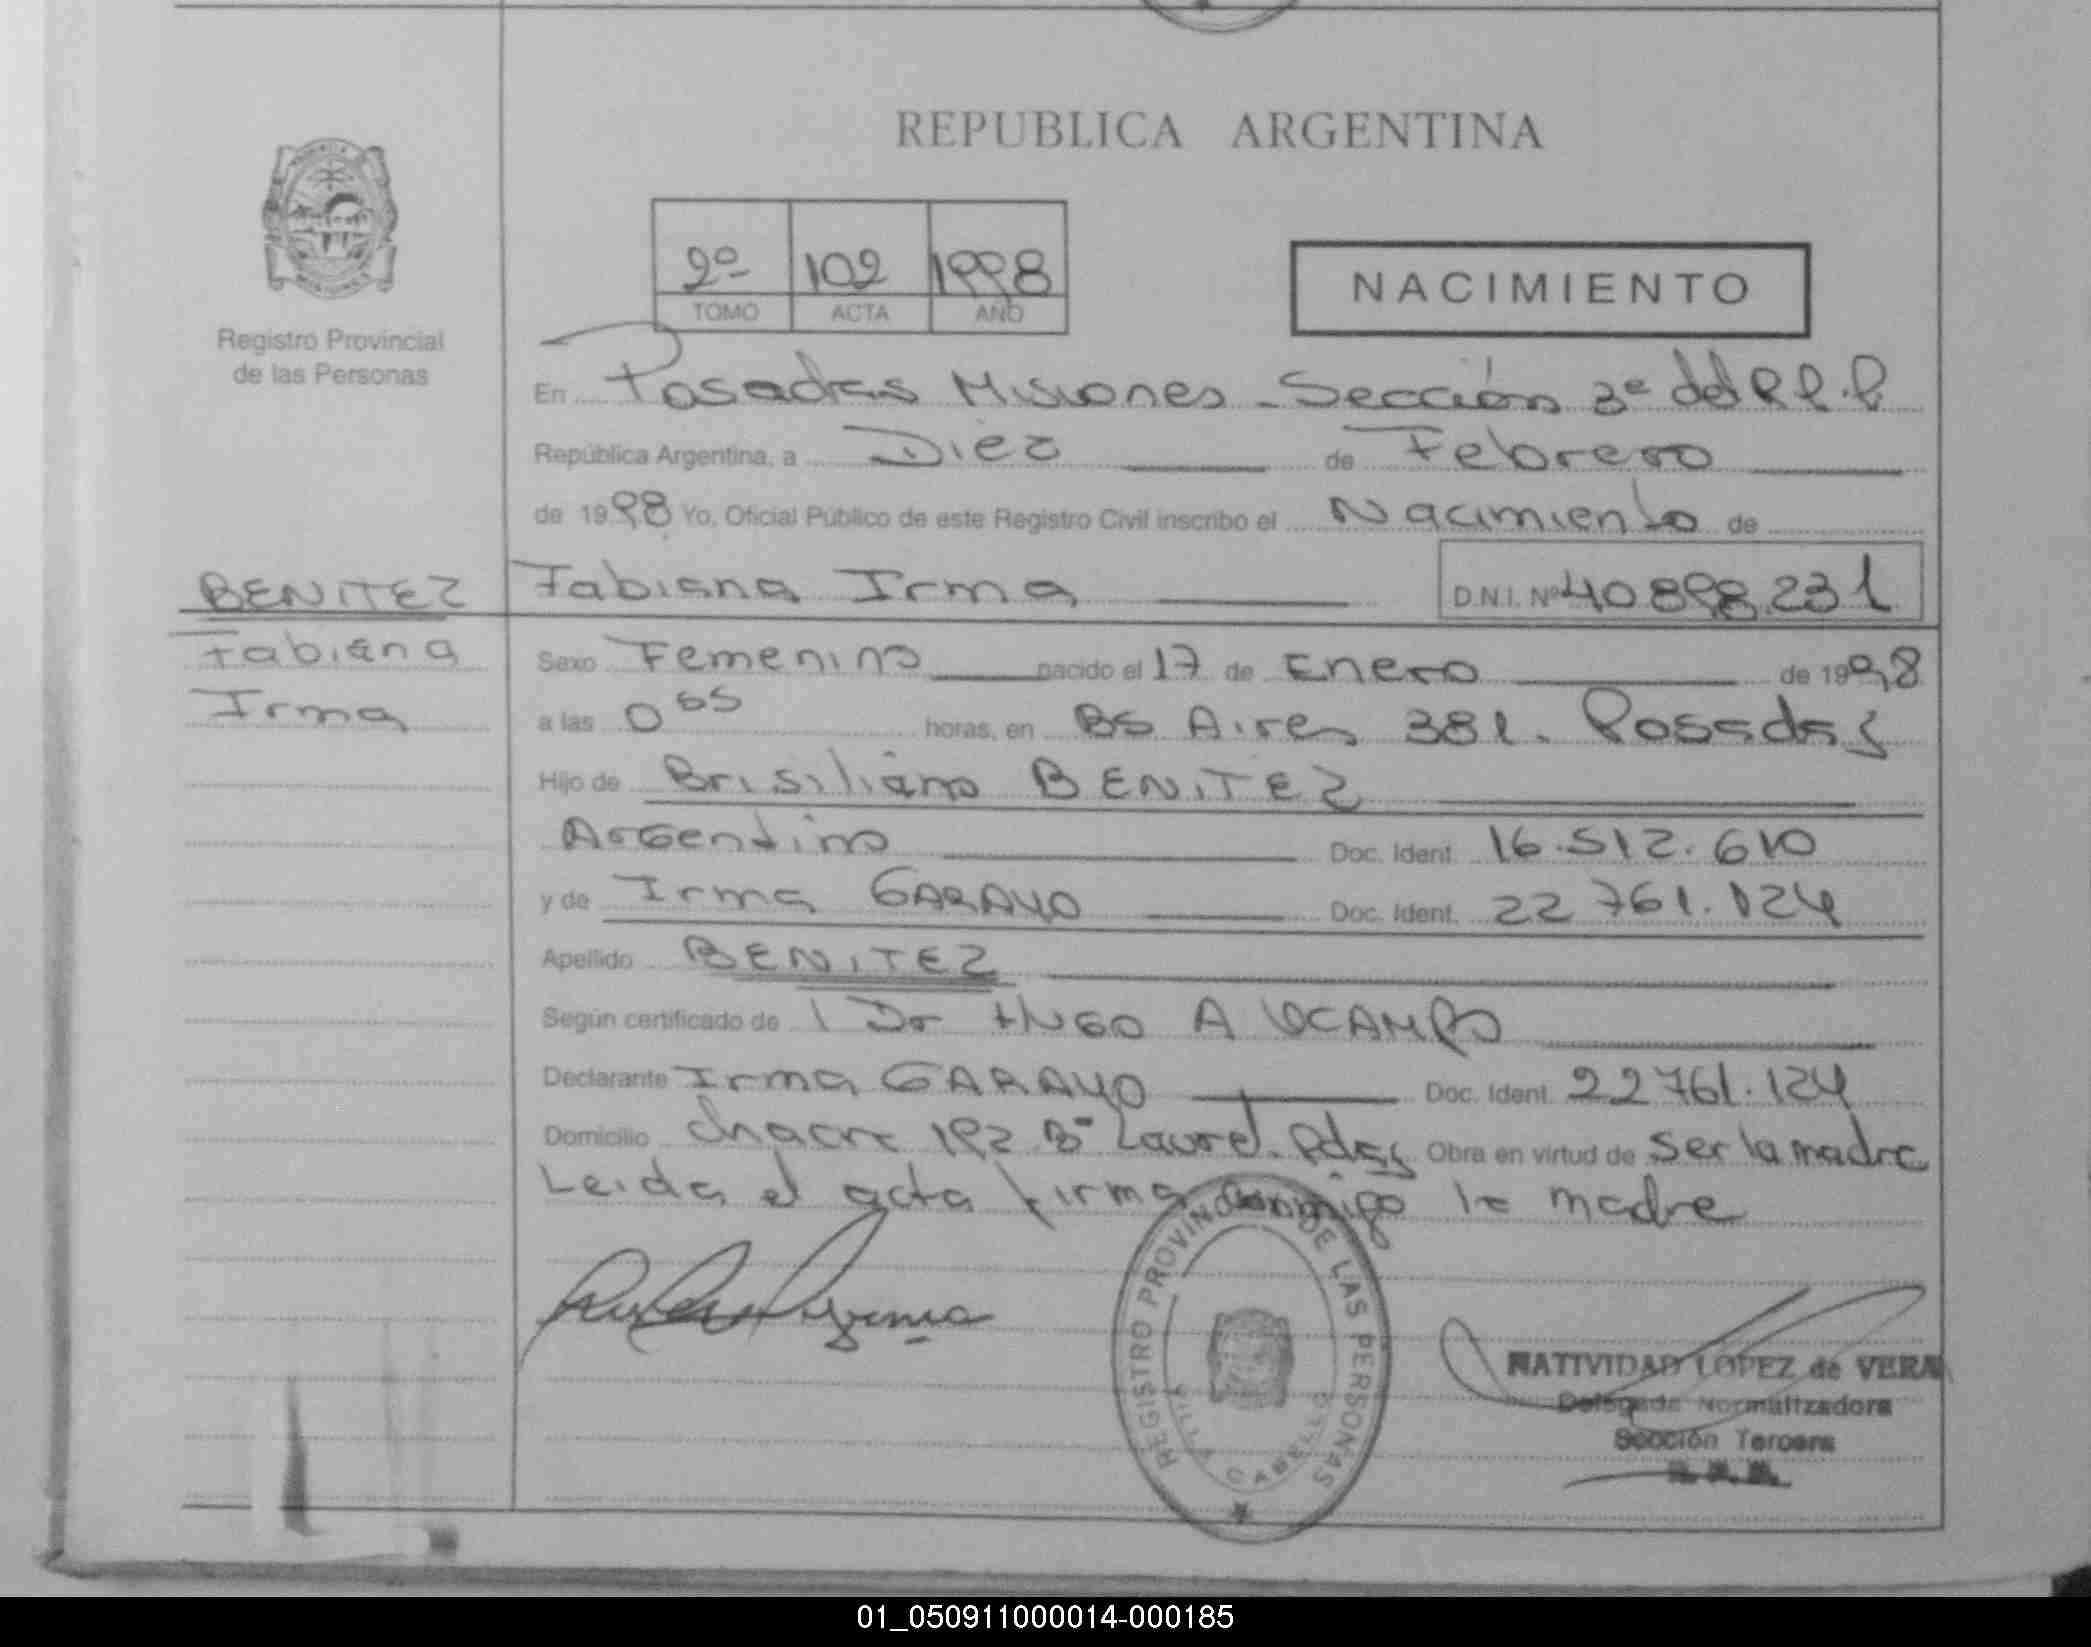 REPUBLICA ARGENTINA
2º 102 1998
TOMO ACTA AÑO
NACIMIENTO
Registro Provincial
de las Personas
En Posadas Misiones - Sección 3ª del R.P.P.
República Argentina, a Diez de Febrero
de 1998 Yo, Oficial Público de este Registro Civil inscribo el Nacimiento de
BENITEZ Fabiana Irma D.N.I. Nº 40.898.231
Fabiana
Irma
Sexo Femenino nacido el 17 de Enero de 1998
a las 0 55 horas, en Bs Aires 381. Posadas
Hijo de Brisiliano BENITEZ
Argentino Doc. Ident. 16.512.610
y de Irma GARAYO Doc. Ident. 22 761.124
Apellido BENITEZ
Según certificado de Dr HUGO A OCAMPO
Declarante Irma GARAYO Doc. Ident. 22761.124
Domicilio chacra 192 Bº Laurel. Pdas Obra en virtud de Ser la madre
Leida el acta firma conmigo la madre
REGISTRO PROVINCIAL DE LAS PERSONAS
CABELLO
NATIVIDAD LOPEZ de VERA
Delegada Normalizadora
Sección Tercera
01_050911000014-000185